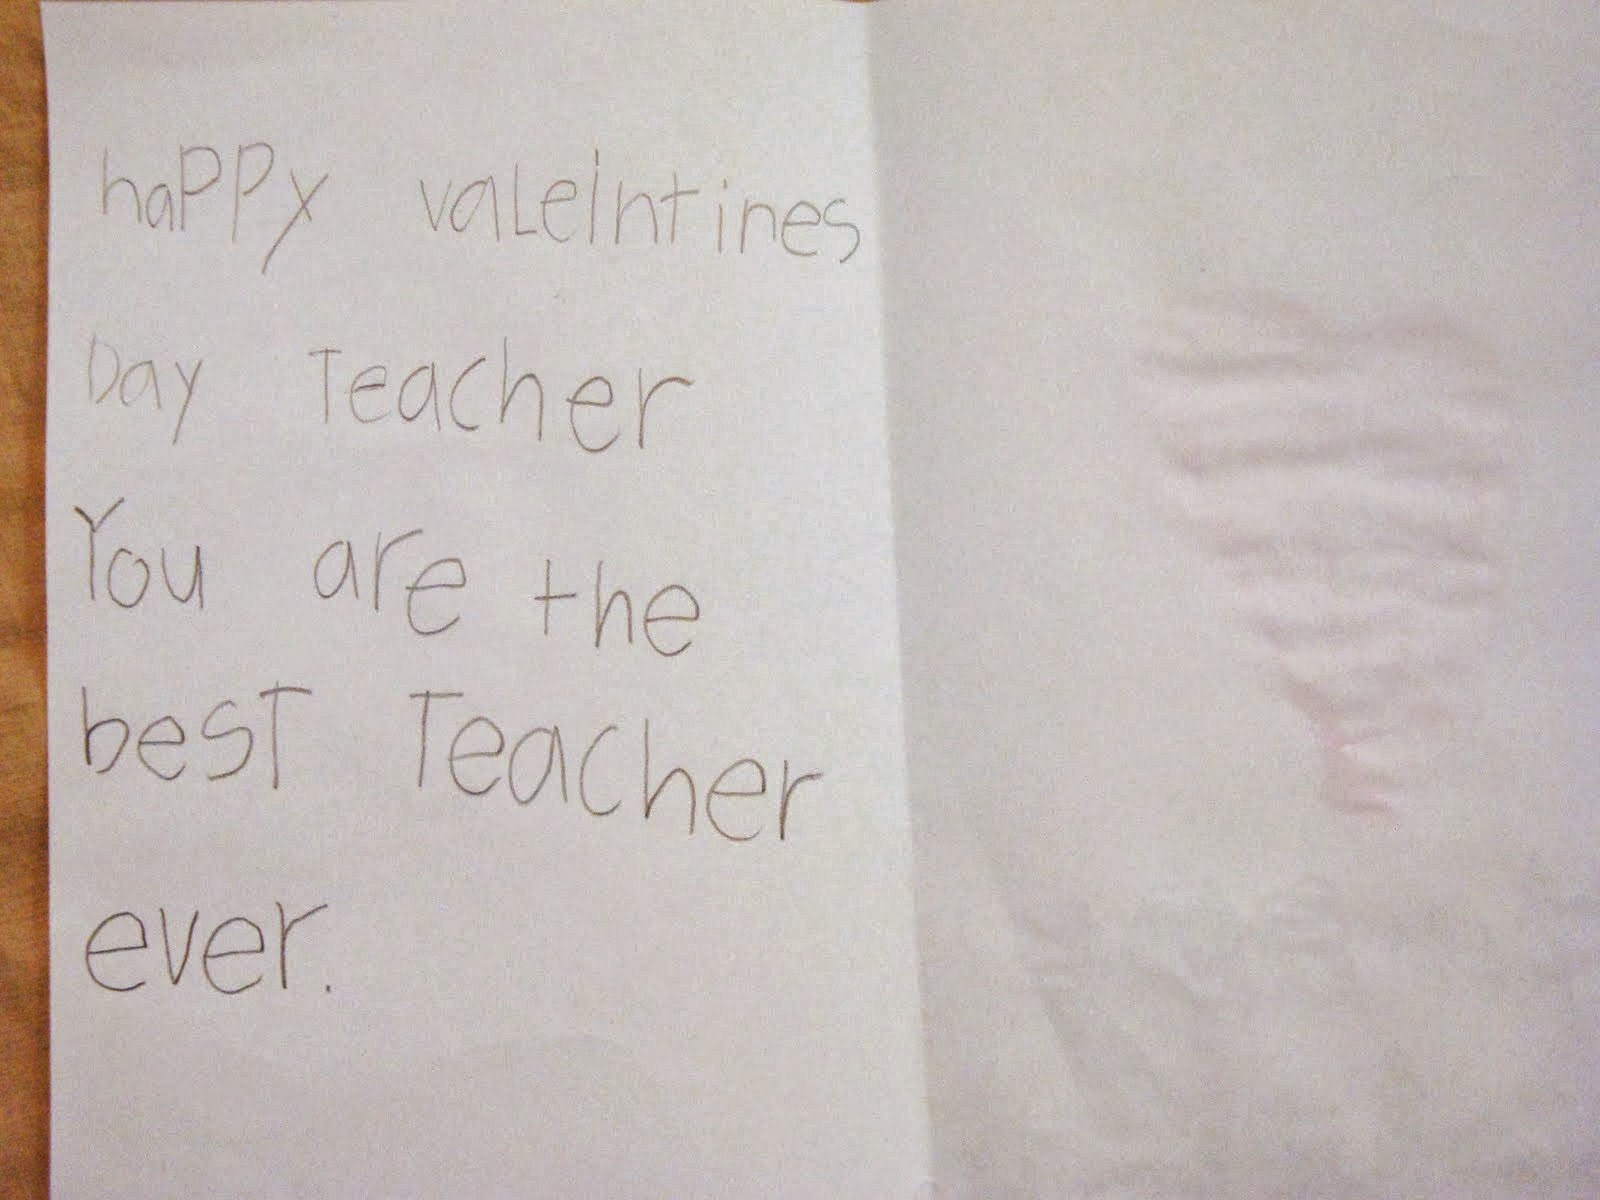 happy valeintines
Day Teacher
You are the
best Teacher
ever.